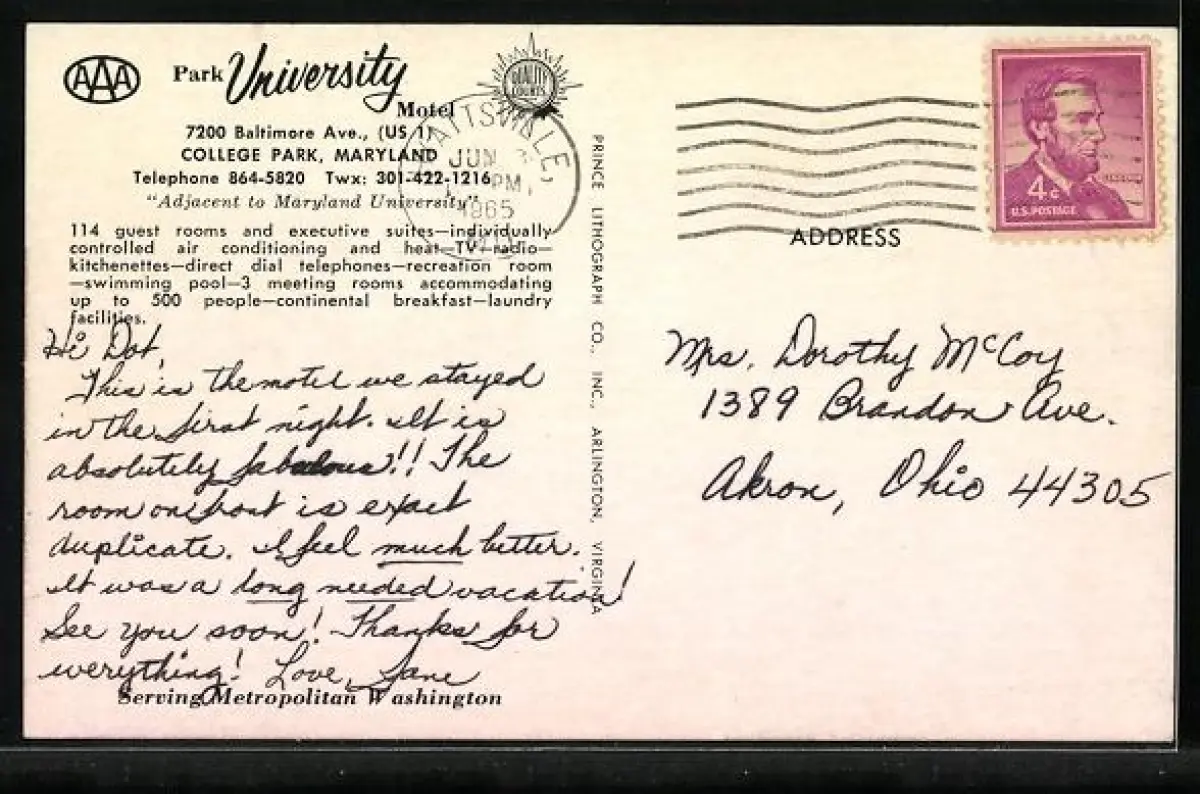 AAA
Park University
Motel
QUALITY
COURTS
7200 Baltimore Ave., (US 1)
COLLEGE PARK, MARYLAND
Telephone 864-5820 Twx: 301-422-1216
"Adjacent to Maryland University"
114 guest rooms and executive suites—individually
controlled air conditioning and heat—TV—radio—
kitchenettes—direct dial telephones—recreation room
—swimming pool—3 meeting rooms accommodating
up to 500 people—continental breakfast—laundry
facilities.
Hi Dot,
This is the motel we stayed
in the first night. It is
absolutely fabulous!! The
room on front is exact
duplicate. I feel much better.
It was a long needed vacation!
See you soon! Thanks for
everything! Love, Jane
Serving Metropolitan Washington
PRINCE LITHOGRAPH CO., INC., ARLINGTON, VIRGINIA
ATTSVILLE,
JUN 3
PM
1965
4¢
U.S. POSTAGE
LINCOLN
ADDRESS
Mrs. Dorothy McCoy
1389 Brandon Ave.
Akron, Ohio 44305